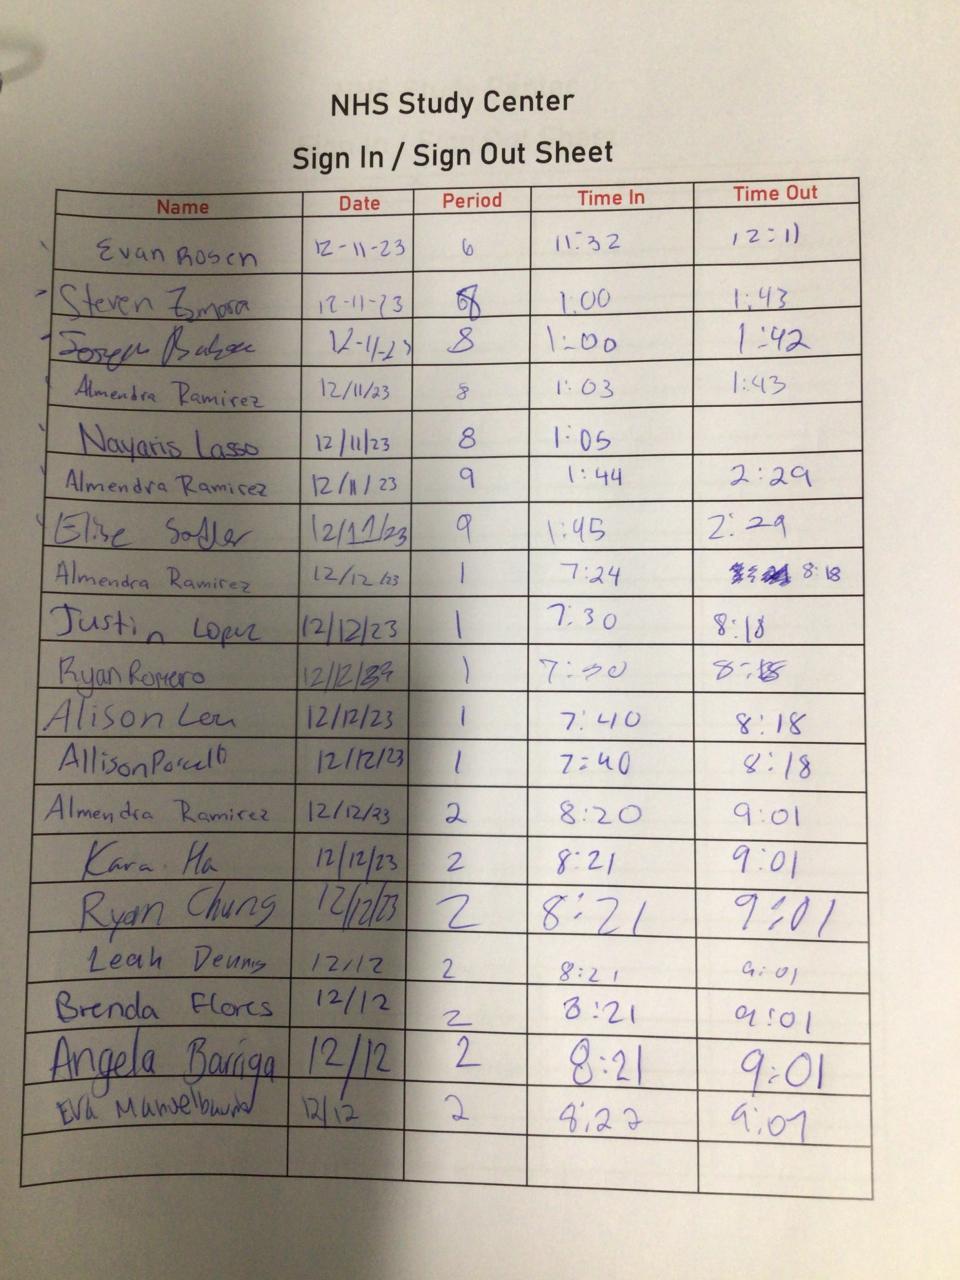 NHS Study Center
Sign In / Sign Out Sheet
Name Date Period Time In Time Out
Evan Rosen 12-11-23 6 11:32 12:11
Steven Zamora 12-11-23 8 1:00 1:43
Joseph 12-11-23 8 1:00 1:42
Almendra Ramirez 12/11/23 8 1:03 1:43
Nayaris Lasso 12/11/23 8 1:05
Almendra Ramirez 12/11/23 9 1:44 2:29
Elise Sadler 12/11/23 9 1:45 2:29
Almendra Ramirez 12/12/23 1 7:24 8:18
Justin Lopez 12/12/23 1 7:30 8:18
Ryan Romero 12/12/23 1 7:30 8:18
Alison Leu 12/12/23 1 7:40 8:18
Allison Porcello 12/12/23 1 7:40 8:18
Almendra Ramirez 12/12/23 2 8:20 9:01
Kara Ha 12/12/23 2 8:21 9:01
Ryan Chung 12/12/23 2 8:21 9:01
Leah Dennis 12/12 2 8:21 9:01
Brenda Flores 12/12 2 8:21 9:01
Angela Barriga 12/12 2 8:21 9:01
Eva 12/12 2 8:22 9:01